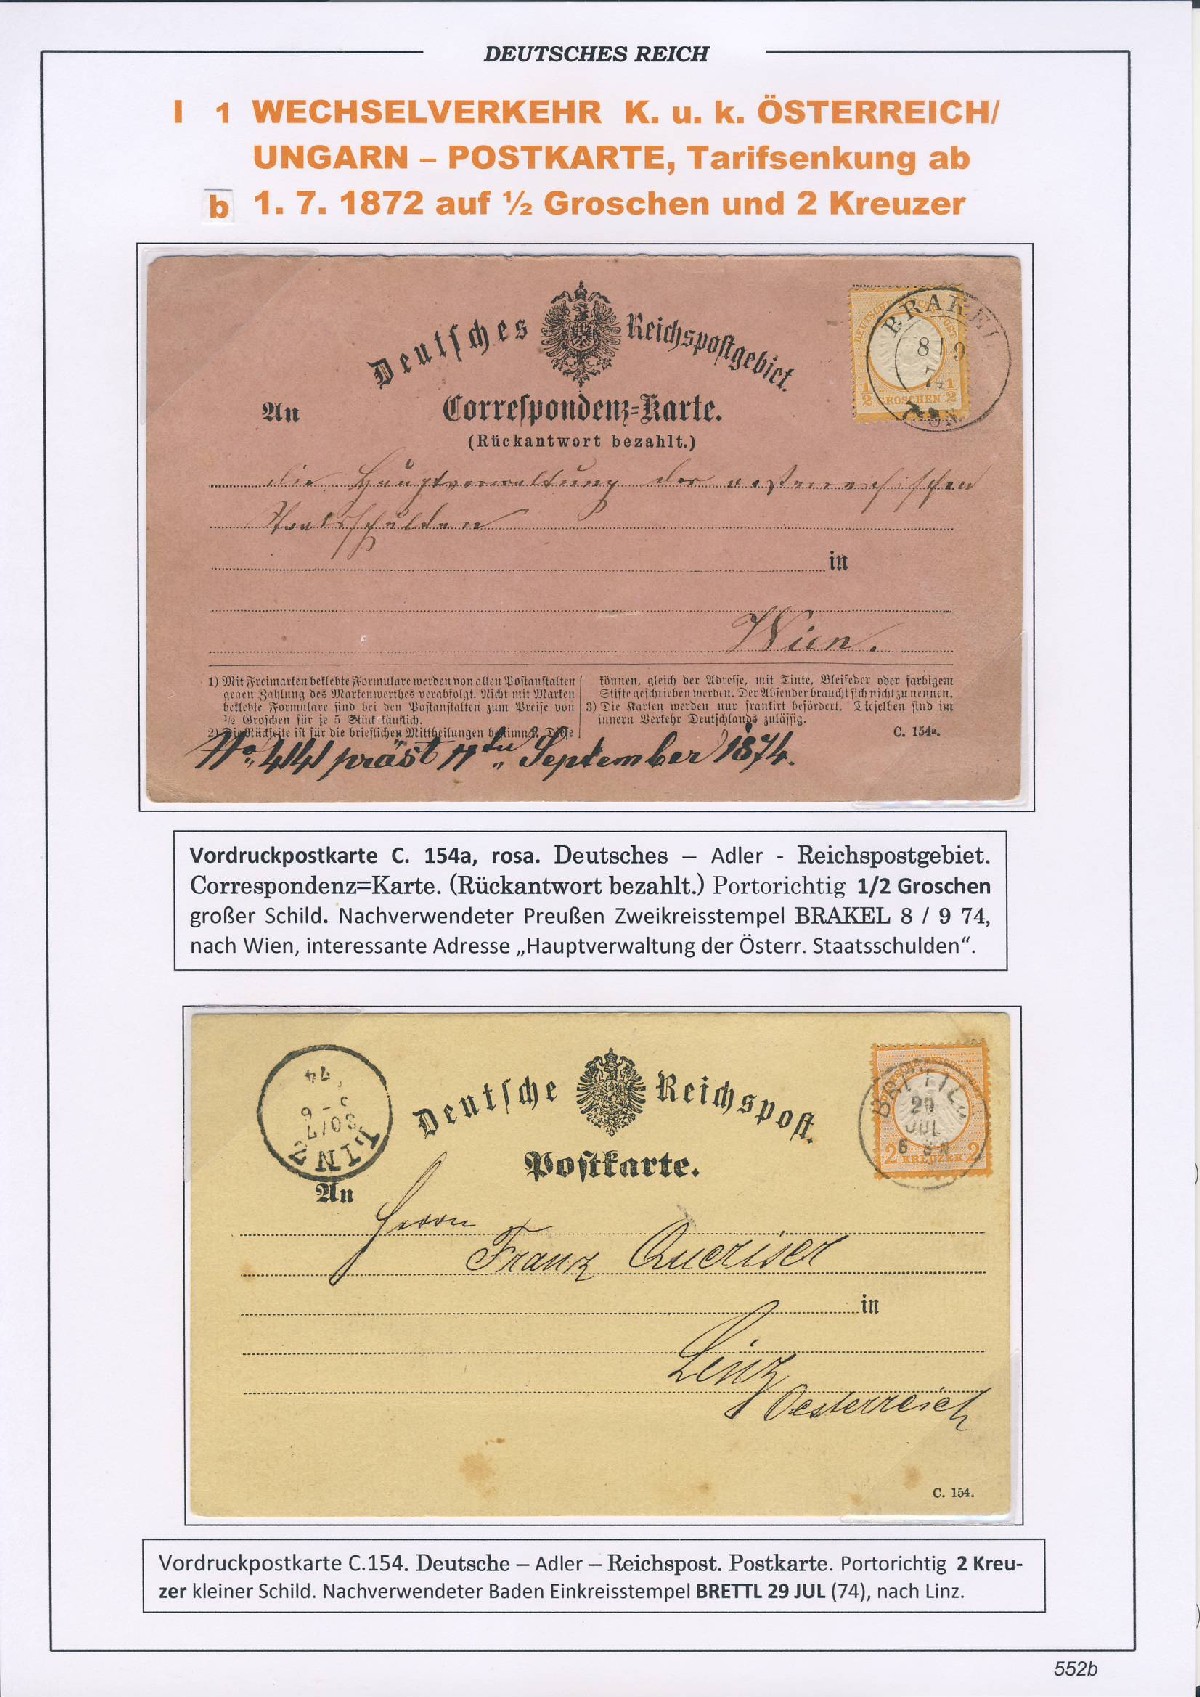 DEUTSCHES REICH
I 1 WECHSELVERKEHR K. u. k. ÖSTERREICH/
UNGARN – POSTKARTE, Tarifsenkung ab
b 1. 7. 1872 auf ½ Groschen und 2 Kreuzer
Deutsches Reichspostgebiet.
BRAKEL
8 / 9
74
1/2 GROSCHEN 1/2
An
Correspondenz=Karte.
(Rückantwort bezahlt.)
die Hauptverwaltung der oesterreichischen
Staatsschulden
in
Wien.
1) Mit Freimarken beklebte Formulare werden von allen Postanstalten
gegen Zahlung des Markenwerthes verabfolgt. Nicht mit Marken
beklebte Formulare sind bei den Postanstalten zum Preise von
½ Groschen für je 5 Stück käuflich.
2) Die Rückseite ist für die brieflichen Mittheilungen bestimmt. Diese
können, gleich der Adresse, mit Tinte, Bleifeder oder farbigem
Stifte geschrieben werden. Der Absender braucht sich nicht zu nennen.
3) Die Karten werden nur frankirt befördert. Dieselben sind im
innern Verkehr Deutschlands zulässig.
C. 154a.
No. 441 präst 11ten September 1874.
Vordruckpostkarte C. 154a, rosa. Deutsches – Adler - Reichspostgebiet.
Correspondenz=Karte. (Rückantwort bezahlt.) Portorichtig 1/2 Groschen
großer Schild. Nachverwendeter Preußen Zweikreisstempel BRAKEL 8 / 9 74,
nach Wien, interessante Adresse „Hauptverwaltung der Österr. Staatsschulden“.
LINZ
30/7
74
Deutsche Reichspost.
BRETTL
29
JUL
2 KREUZER 2
Postkarte.
An
Herrn
Franz Queriser
in
Linz
Oesterreich
C. 154.
Vordruckpostkarte C.154. Deutsche – Adler – Reichspost. Postkarte. Portorichtig 2 Kreu-
zer kleiner Schild. Nachverwendeter Baden Einkreisstempel BRETTL 29 JUL (74), nach Linz.
552b